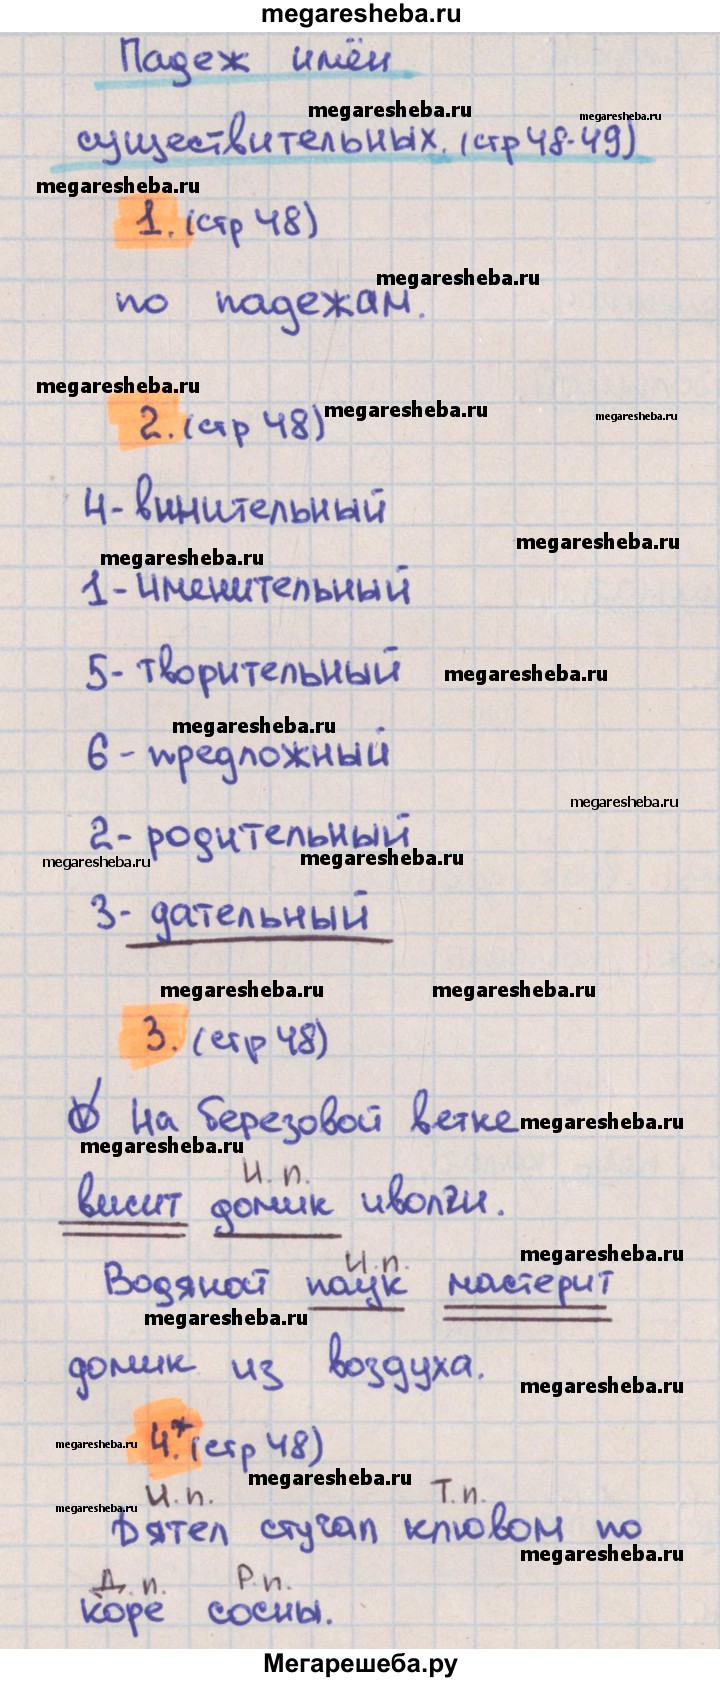 megaresheba.ru
Падеж имён
megaresheba.ru megaresheba.ru
существительных. (стр 48-49)
megaresheba.ru
1. (стр 48)
megaresheba.ru
по падежам.
megaresheba.ru
2. (стр 48) megaresheba.ru megaresheba.ru
4-винительный
megaresheba.ru
megaresheba.ru
1-именительный
5-творительный megaresheba.ru
megaresheba.ru
6-предложный
megaresheba.ru
2-родительный
megaresheba.ru megaresheba.ru
3-дательный
megaresheba.ru megaresheba.ru
3. (стр 48)
На березовой ветке megaresheba.ru
megaresheba.ru
И. п.
висит домик иволги.
megaresheba.ru
И. п.
Водяной паук мастерит
megaresheba.ru
домик из воздуха.
megaresheba.ru
megaresheba.ru 4.* (стр 48)
megaresheba.ru
И. п. Т. п.
megaresheba.ru
Дятел стучал клювом по
megaresheba.ru
Д. п. Р. п.
коре сосны.
Мегарешеба.ру